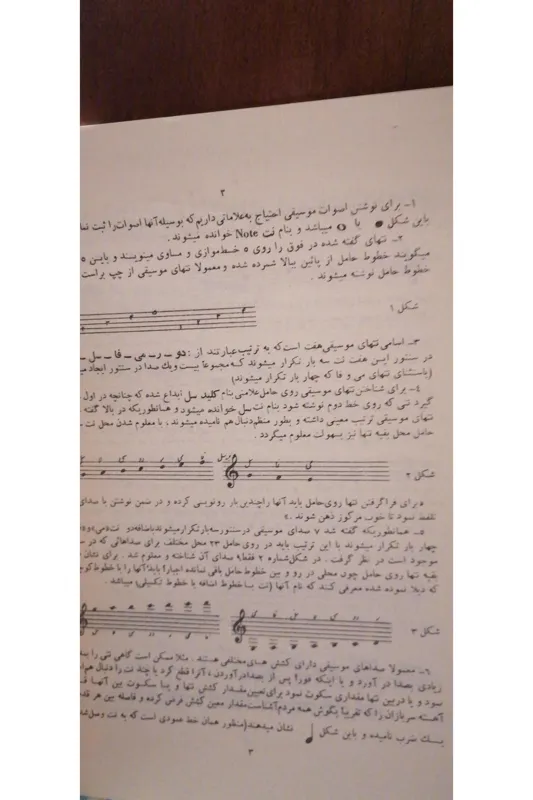 ۲
۱- برای نوشتن اصوات موسیقی احتیاج به علاماتی داریم که بوسیله آنها اصوات را ثبت نما
باین شکل یا میباشد و بنام نت Note خوانده میشوند .
۲- نتهای گفته شده در فوق را روی ۵ خط موازی و مساوی مینویسند و باین ۵
میگویند خطوط حامل از پائین ببالا شمرده شده و معمولا نتهای موسیقی از چپ براست
خطوط حامل نوشته میشوند .
شکل ۱
۳- اسامی نتهای موسیقی هفت است که به ترتیب عبارتند از : دو - ر - می - فا - سل -
در سنتور ایسن هفت نت سه بار تکرار میشوند که مجموعاً بیست و یك صدا در سنتور ایجاد می
(باستثنای نتهای می و فا که چهار بار تکرار میشوند)
۴- برای شناختن نتهای موسیقی روی حامل علامتی بنام کلید سل ابداع شده که چنانچه در اول
گیرد نتی که روی خط دوم نوشته شود بنام نت سل خوانده میشود و همانطوریکه در بالا گفته
نتهای موسیقی ترتیب معینی داشته و بطور منظم دنبال هم نامیده میشوند ، با معلوم شدن محل نت
حامل محل بقیه نتها نیز بسهولت معلوم میگردد .
شکل ۲
«برای فرا گرفتن نتها روی حامل باید آنها را چندین بار رونویسی کرده و در ضمن نوشتن با صدای
تلفظ نمود تا خوب مرکوز ذهن شوند .»
۵- همانطوریکه گفته شد ۷ صدای موسیقی در سنتور سه بار تکرار میشوند باضافه دو نت
چهار بار تکرار میشوند با این ترتیب باید در روی حامل ۲۳ محل مختلف برای صداهائی که در
موجود است در نظر گرفت . در شکل شماره ۲ فقط ۹ صدای آن شناخته و معلوم شد . برای نشان
بقیه نتها روی حامل چون محلی در رو و بین خطوط حامل باقی نمانده اجباراً باید آنها را با خطوط
که ذیلا نموده شده معرفی کنند که نام آنها (نت با خطوط اضافه یا خطوط تکمیلی) میباشد .
شکل ۳
۶- معمولا صداهای موسیقی دارای کشش های مختلفی هستند . مثلا ممکن است گاهی نتی را
زیادی بصدا در آورد و یا اینکه فوراً پس از بصدا در آوردن ، آنرا قطع کرد یا چند نت را دنبال هم
نمود و یا در بین نتها مقداری سکوت نمود برای تعیین مقدار کشش نتها و یا سکوت بین آنها
آهسته سربازان را که تقریباً بگوش همه مردم آشناست مقدار معین کشش فرض کرده و فاصله بین هر
یك ضرب نامیده و باین شکل نشان میدهند (منظور همان خط عمودی است که به نت وصل شد
۳